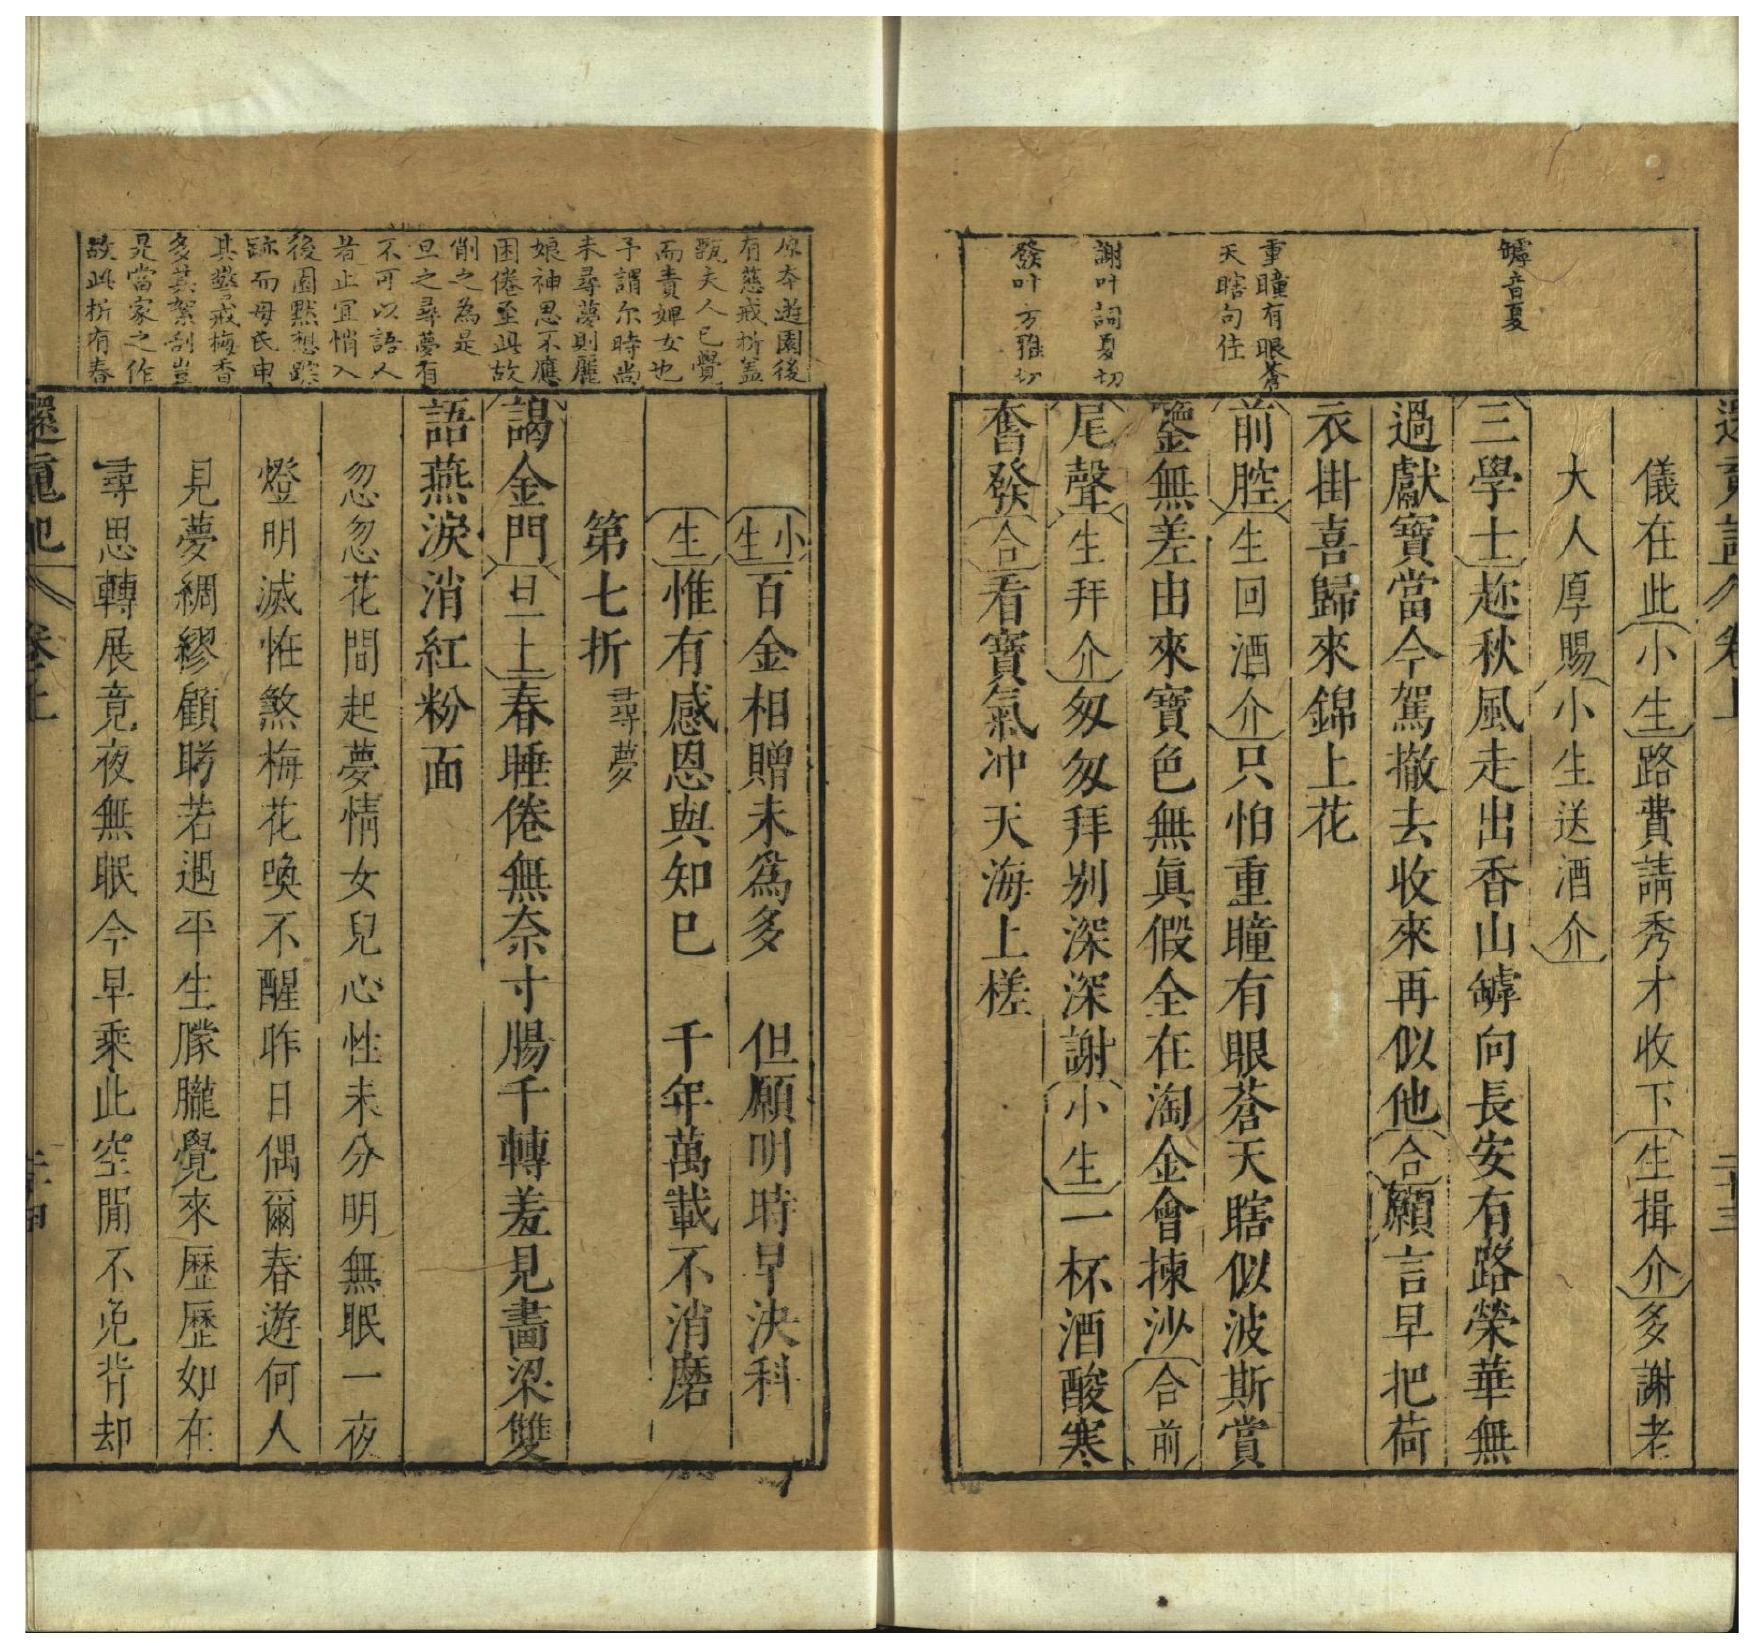 罅音夏
重瞳有眼蒼
天瞎句佳
謝叶詞夏切
發叶方雅切
儀在此小生路費請秀才收下生揖介多謝老
大人厚賜小生送酒介
三學士趂秋風走出香山罅向長安有路榮華無
過獻寶當今駕撤去收來再似他合願言早把荷
衣掛喜歸來錦上花
前腔生回酒介只怕重瞳有眼蒼天瞎似波斯賞
鑒無差由來寶色無眞假全在淘金會揀沙合前
尾聲生拜介匆匆拜别深深謝小生一杯酒酸寒
奮發合看寳氣冲天海上槎
二十三
原本遊園後
有慈戒折盖
甄夫人已覺
而責婢女也
予謂尔時尚
未尋夢則麗
娘神思不應
困倦至此故
削之為是
旦之尋夢有
不可以語人
者止宜悄入
後園黙想踪
跡而母氏申
其慈戒梅香
多其絮刮豈
是當家之作
故此折有春
小生百金相贈未爲多 但願明時早決科
生惟有感恩與知已 千年萬載不消磨
第七折 尋夢
謁金門旦上春睡倦無奈寸腸千轉羞見畵梁雙
語燕淚消紅粉面
忽忽花間起夢情女兒心性未分明無眠一夜
燈明滅恠煞梅花喚不醒昨日偶爾春遊何人
見夢綢繆顧盻若遇平生朦朧覺來歷歷如在
尋思轉展竟夜無眠今早乘此空閒不免背却
還魂記 卷上